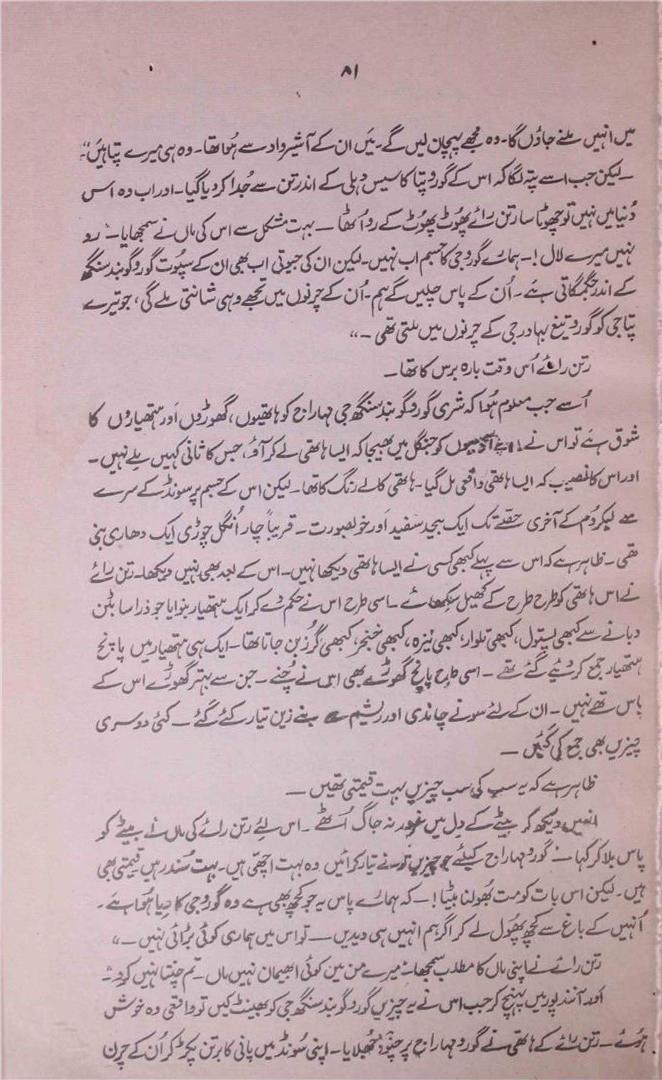 ۸۱
میں انہیں ملنے جاؤں گا۔ وہ مجھے پہچان لیں گے۔ میں ان کے آشیرواد سے ہُوا تھا۔ وہ ہی میرے پتا ہیں“
۔ لیکن جب اسے پتہ لگا کہ اس کے گورو پتا کا سیس دہلی کے اندر تن سے جُدا کر دیا گیا۔ اور اب وہ اس
دُنیا میں نہیں تو چھوٹا سا رتن رائے پھُوٹ پھُوٹ کے رو اُٹھا ۔ بہت مشکل سے اس کی ماں نے سمجھایا۔ رو
نہیں میرے لال!۔ ہمارے گورو جی کا جسم اب نہیں۔ لیکن ان کی جیوتی اب بھی ان کے سپوت گورو گوبند سنگھ
کے اندر جگمگاتی ہے۔ اُن کے پاس چلیں گے ہم۔ اُن کے چرنوں میں تجھے وہی شانتی ملے گی، جو تیرے
پتا جی کو گورو تیغ بہادر جی کے چرنوں میں ملتی تھی ۔“
رتن رائے اُس وقت بارہ برس کا تھا۔
اُسے جب معلوم ہُوا کہ شری گورو گوبند سنگھ جی مہاراج کو ہاتھیوں، گھوڑوں اور ہتھیاروں کا
شوق ہے تو اس نے اپنے آدمیوں کو جنگل میں بھیجا کہ ایسا ہاتھی لے کر آؤ، جس کا ثانی کہیں ملے نہیں۔
اور اس کا نصیب کہ ایسا ہاتھی واقعی مل گیا۔ ہاتھی کالے رنگ کا تھا۔ لیکن اس کے جسم پر سونڈ کے سرے
سے لیکر دُم کے آخری حصّے تک ایک بیحد سفید اور خوبصورت ۔ قریباً چار اُنگل چوڑی ایک دھاری بنی
تھی۔ ظاہر ہے کہ اس سے پہلے کبھی کسی نے ایسا ہاتھی دیکھا نہیں۔ اس کے بعد بھی نہیں دیکھا۔ رتن رائے
نے اس ہاتھی کو طرح طرح کے کھیل سکھائے ۔ اسی طرح اس نے حکم دے کر ایک ہتھیار بنوایا جو ذرا سا بٹن
دبانے سے کبھی پستول، کبھی تلوار، کبھی نیزہ، کبھی خنجر، کبھی گُرز بن جاتا تھا۔ ایک ہی ہتھیار میں پانچ
ہتھیار جمع کر دئیے گئے تھے ۔ اسی طرح پانچ گھوڑے بھی اس نے چُنے ۔ جن سے بہتر گھوڑے اس کے
پاس تھے نہیں۔ ان کے لئے سونے چاندی اور ریشم سے بنے زین تیار کئے گئے ۔ کئی دوسری
چیزیں بھی جمع کی گئیں ۔
ظاہر ہے کہ یہ سب کی سب چیزیں بہت قیمتی تھیں ۔
انھیں دیکھ کر بیٹے کے دل میں غرور نہ جاگ اُٹھے ۔ اس لئے رتن رائے کی ماں نے بیٹے کو
پاس بلا کر کہا ؎ گورو مہاراج کیلئے جو چیزیں تو نے تیار کرائیں وہ بہت اچھی ہیں۔ بہت سُندر ہیں قیمتی بھی
ہیں۔ لیکن اس بات کو مت بھُولنا بیٹا! ۔ کہ ہمارے پاس یہ جو کچھ بھی ہے وہ گورو جی کا دِیا ہُوا ہے۔
اُنہیں کے باغ سے کچھ پھُول لے کر اگر ہم انہیں ہی دیدیں ۔ تو اس میں ہماری کوئی بڑائی نہیں ۔“
رتن رائے نے اپنی ماں کا مطلب سمجھا ؎ میرے من میں کوئی ابھیمان نہیں ماں۔ تم چنتا نہیں کرو۔“
اور آنند پور میں پہنچ کر جب اس نے یہ چیزیں گورو گوبند سنگھ جی کو بھینٹ کیں تو واقعی وہ خوش
ہوئے ۔ رتن رائے کے ہاتھی نے گورو مہاراج پر چنور جھُلایا۔ اپنی سُونڈ میں پانی کا برتن پکڑ کر اُن کے چرن